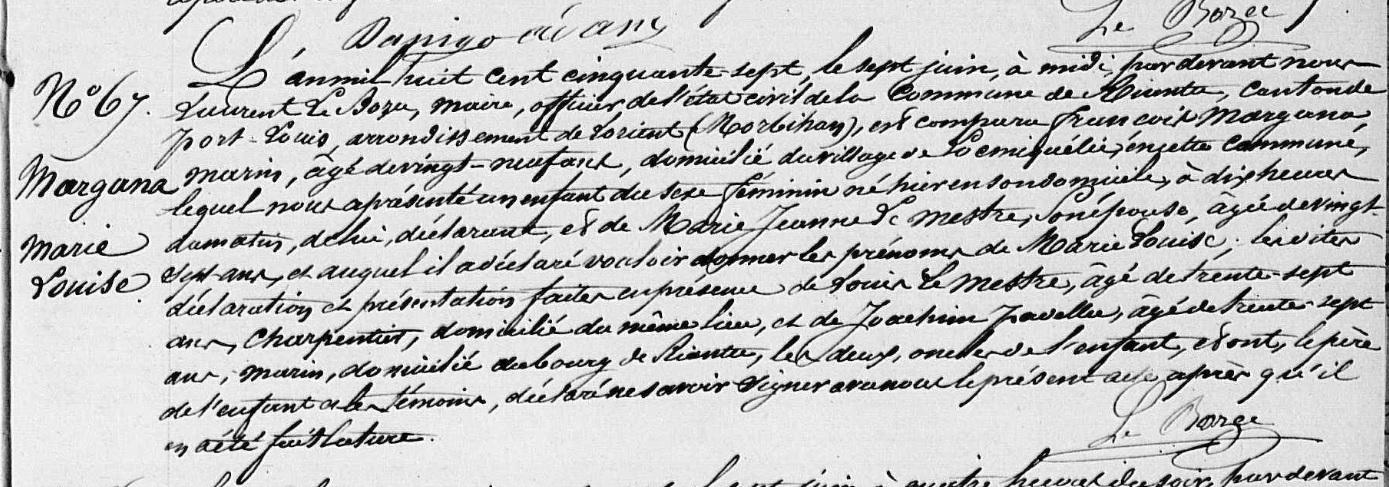 Le Bozec
N° 67.
Margana
Marie
Louise
L'an mil huit cent cinquante-sept, le sept juin, à midi, par devant nous
Laurent Le Bozec, maire, officier de l'état civil de la Commune de Riantec, canton de
port-Louis, arrondissement de Lorient (Morbihan), est comparu François Margana
marin, âgé de vingt-neuf ans, domicilié du village de Locmiquélic, en cette Commune,
lequel nous a présenté un enfant du sexe féminin né hier en son domicile, à dix heures
du matin, de lui, déclarant, et de Marie Jeanne Le Mestre, son épouse, âgée de vingt-
sept ans, et auquel il a déclaré vouloir donner les prénoms de Marie Louise; les dites
déclaration et présentation faites en présence de Louis Le Mestre, âgé de trente-sept
ans, Charpentier, domicilié du même lieu, et de Joachim, âgé de trente-sept
ans, marin, domicilié du bourg de Riantec, les deux, oncles de l'enfant, et ont, le père
de l'enfant et les témoins, déclaré ne savoir signer avec nous le présent acte après qu'il
en a été fait lecture.
Le Bozec
sept juin à quatre heures du soir, par devant